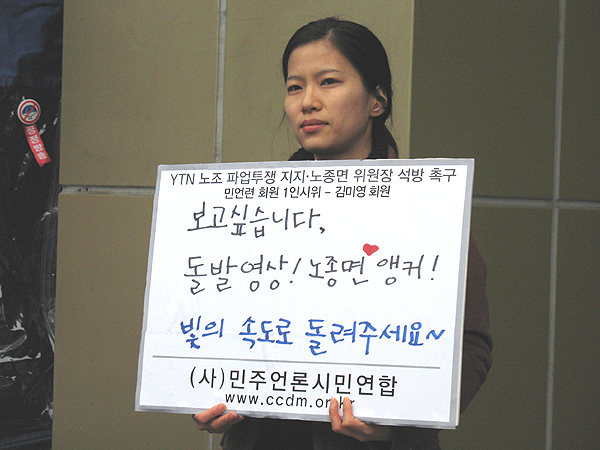 YTN 노조 파업투쟁 지지·노종면 위원장 석방 촉구
민언련 회원 1인시위 - 김미영 회원
보고싶습니다,
돌발영상! 노종면 앵커!
빛의 속도로 돌려주세요~
(사)민주언론시민연합
www.ccdm.or.kr
공정방송